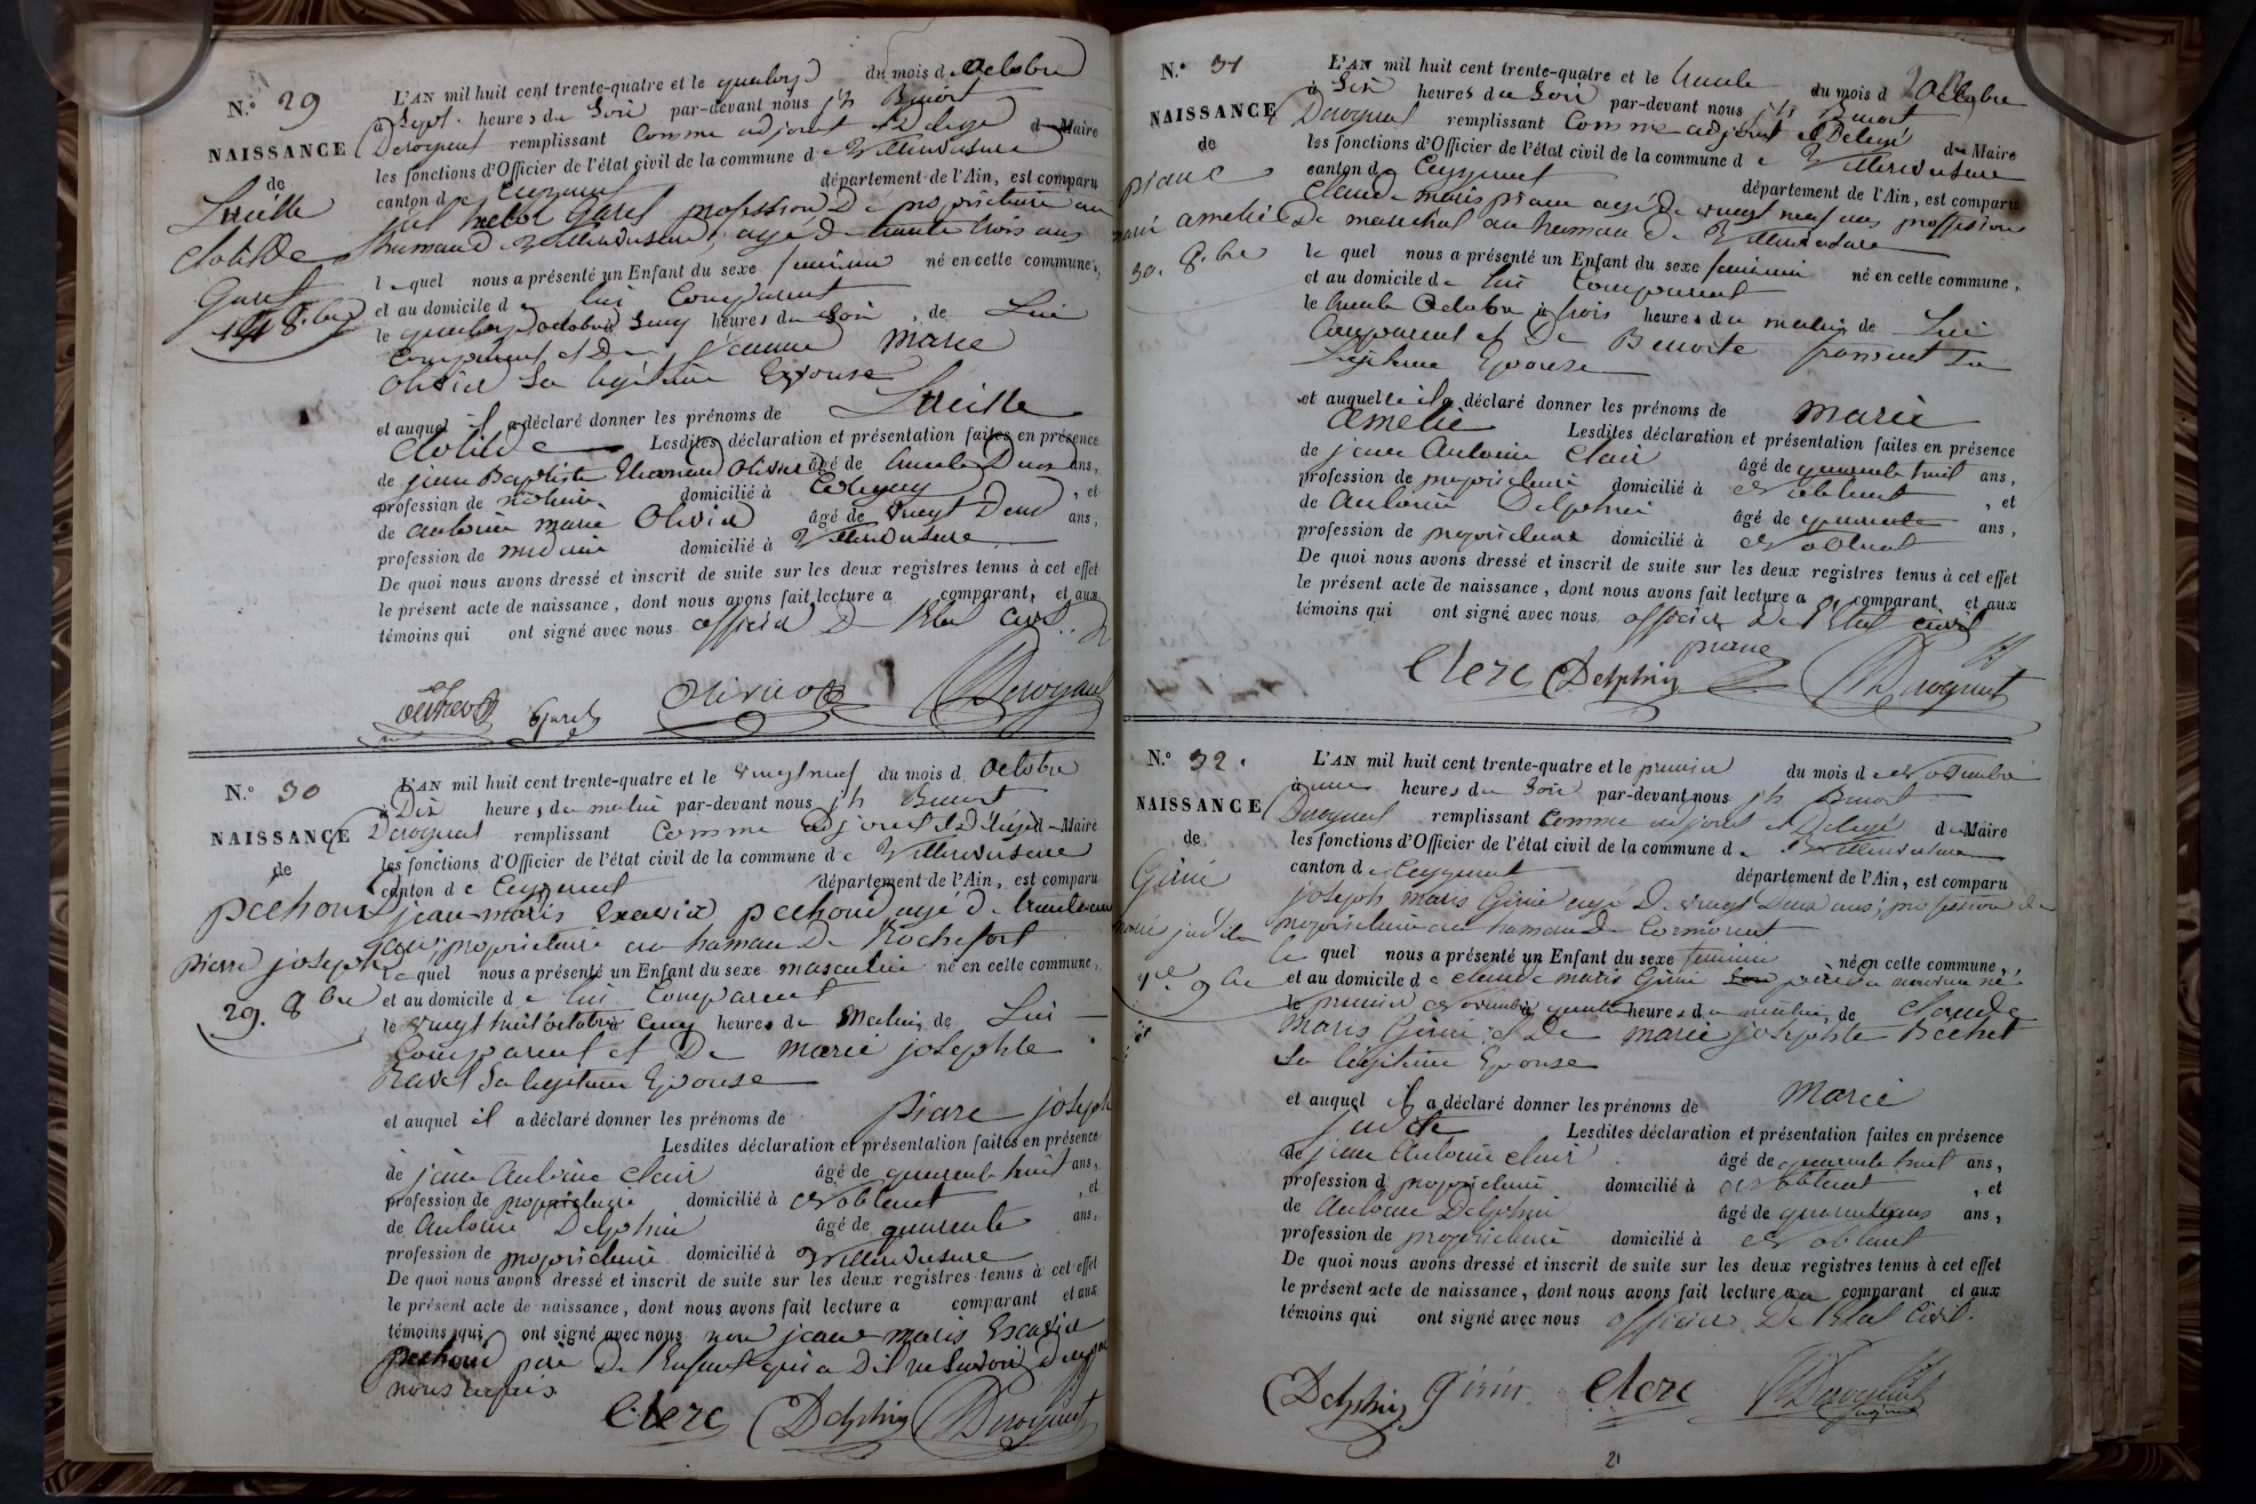 N.º 29
NAISSANCE
de
Lucille
Clotilde
Garel
14 8.bre
L'AN mil huit cent trente-quatre et le quatorze du mois d Octobre
à Sept heures du Soir par-devant nous jh Benoit
Deroquat remplissant Comme adjoint et Delegé d Maire
les fonctions d'Officier de l'état civil de la commune de Villereversure
canton de Ceyzeriat département de l'Ain, est comparu
Garel profession De propriétaire au
hameau de Villereversure, agé De trente trois ans
lequel nous a présenté un Enfant du sexe feminin né en cette commune,
et au domicile de lui Comparant
le quatorze octobre à cinq heures du Soir, de Lui
Comparant et De jeanne Marie
Olivier Sa legitime Epouse
et auquel il a déclaré donner les prénoms de Lucille
Clotilde Lesdites déclaration et présentation faites en présence
de jean Baptiste Olivier âgé de trente Deux ans,
profession de notaire domicilié à Coligny, et
de antoine marie Olivier âgé de vingt Deux ans,
profession de medecin domicilié à Villereversure
De quoi nous avons dressé et inscrit de suite sur les deux registres tenus à cet effet
le présent acte de naissance, dont nous avons fait lecture a comparant, et aux
témoins qui ont signé avec nous officier De l'Etat Civil
Olivier Garel Olivier Deroquat
N.º 30
NAISSANCE
de
pechoux
pierre joseph
29. 8 bre
L'AN mil huit cent trente-quatre et le vingt neuf du mois d Octobre
à Dix heures du matin par-devant nous jh Benoit
Deroquat remplissant Comme adjoint et Delegé d Maire
les fonctions d'Officier de l'état civil de la commune de Villereversure
canton de Ceyzeriat département de l'Ain, est comparu
jean-marie Exavier pechoux agé de trente
ans, propriétaire au hameau De Rochefort
Le quel nous a présenté un Enfant du sexe masculin né en cette commune,
et au domicile de lui Comparant
le vingt huit octobre à Cinq heures du Matin, de Lui
Comparant et De marie josephte
Ravet Sa legitime Epouse
et auquel il a déclaré donner les prénoms de Piare joseph
Lesdites déclaration et présentation faites en présence
de jean Antoine Clair âgé de quarante huit ans,
profession de propriétaire domicilié à Noblent, et
de Antoine Delphin âgé de quarante ans,
profession de propriétaire domicilié à Villereversure
De quoi nous avons dressé et inscrit de suite sur les deux registres tenus à cet effet
le présent acte de naissance, dont nous avons fait lecture a comparant et aux
témoins qui ont signé avec nous non jean marie Exavier
pechoux père De l'Enfant qui a Dit ne Savoir De ce par
nous requis
Clerc Delphin Deroquat
N.º 31
NAISSANCE
de
piane
marie amelie
30. 8.bre
L'AN mil huit cent trente-quatre et le trente du mois d'Octobre
à Six heures du Soir par-devant nous jh Benoit
Deroquat remplissant Comme adjoint et Delegé du Maire
les fonctions d'Officier de l'état civil de la commune de Villereversure
canton de Ceyzeriat département de l'Ain, est comparu
Claude marie piane agé De vingt neuf ans profession
De marechal au hameau De Villereversure
le quel nous a présenté un Enfant du sexe feminin né en cette commune,
et au domicile de lui Comparant
le trente Octobre à trois heures du matin, de Lui
Comparant et De Benoite Sa
Legitime Epouse
et auquel il a déclaré donner les prénoms de Marie
Amelie Lesdites déclaration et présentation faites en présence
de jean Antoine Clair âgé de quarante huit ans,
profession de propriétaire domicilié à Noblent, et
de Antoine Delphin âgé de quarante ans,
profession de propriétaire domicilié à Noblent
De quoi nous avons dressé et inscrit de suite sur les deux registres tenus à cet effet
le présent acte de naissance, dont nous avons fait lecture a comparant et aux
témoins qui ont signé avec nous officier De l'Etat civil
piane
Clerc Delphin Deroquat
N.º 32.
NAISSANCE
de
Girin
marie judite
1er 9 bre
L'AN mil huit cent trente-quatre et le premier du mois de Novembre
à une heures du Soir par-devant nous jh Benoit
Deroquat remplissant Comme adjoint et Delegé du Maire
les fonctions d'Officier de l'état civil de la commune de Villereversure
canton de Ceyzeriat département de l'Ain, est comparu
joseph marie Girin agé De vingt Deux ans, profession de
propriétaire au hameau De Cormorent
le quel nous a présenté un Enfant du sexe feminin né en cette commune,
et au domicile de claude marie Girin père
le premier Novembre à quatre heures du matin, de Claude
Marie Girin et De marie josephte Bechet
Sa légitime Epouse
et auquel il a déclaré donner les prénoms de Marie
Judite Lesdites déclaration et présentation faites en présence
de jean Antoine Clair âgé de quarante huit ans,
profession de propriétaire domicilié à Noblent, et
de Antoine Delphin âgé de quarante ans,
profession de propriétaire domicilié à Noblent
De quoi nous avons dressé et inscrit de suite sur les deux registres tenus à cet effet
le présent acte de naissance, dont nous avons fait lecture au comparant et aux
témoins qui ont signé avec nous officier De l'Etat Civil.
Delphin Girin Clerc Deroquat
21